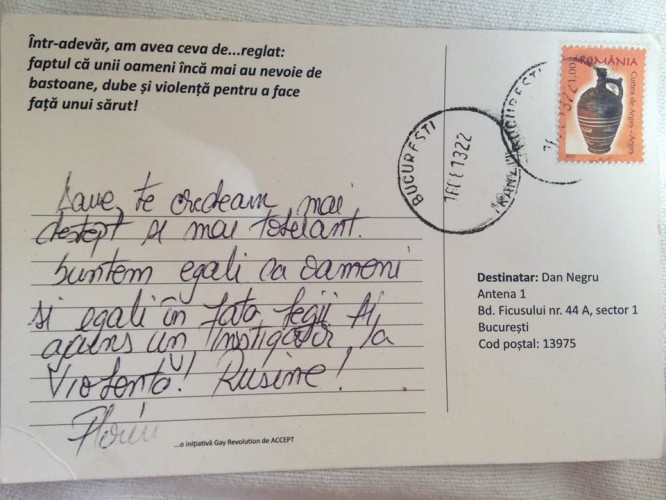 Într-adevăr, am avea ceva de...reglat:
faptul că unii oameni încă mai au nevoie de
bastoane, dube și violență pentru a face
față unui sărut!
ROMÂNIA
1,00 L
Curtea de Argeș - Argeș
BUCUREȘTI
BUCUREȘTI
1322
Dane, te credeam mai
destept si mai tolerant.
Suntem egali ca oameni
si egali în fata legii. Ai
ajuns un instigator la
violenta! Rusine!
Florin
Destinatar: Dan Negru
Antena 1
Bd. Ficusului nr. 44 A, sector 1
București
Cod poștal: 13975
...o inițiativă Gay Revolution de ACCEPT